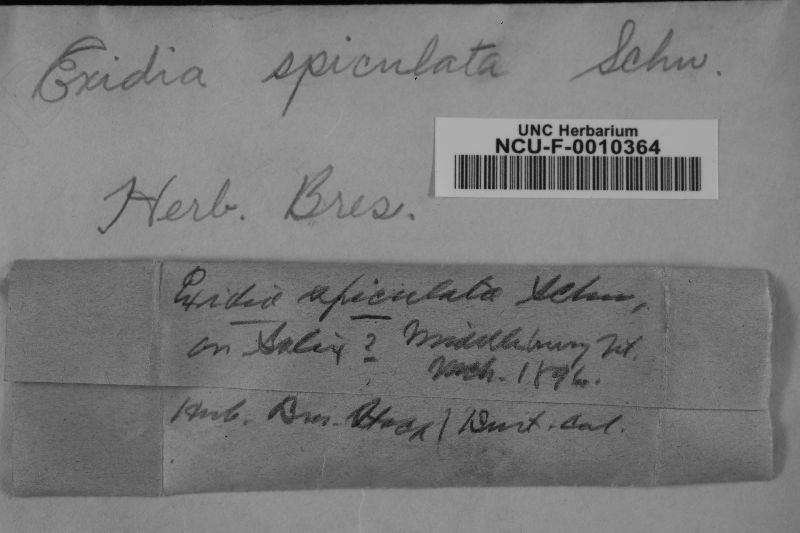 Exidia spiculata Schw.
UNC Herbarium
NCU-F-0010364
Herb. Bres.
Exidia spiculata Schw,
on Salix? Middlebury Vt.
Mch. 1896.
Herb. Bres. Stock / Burt. col.